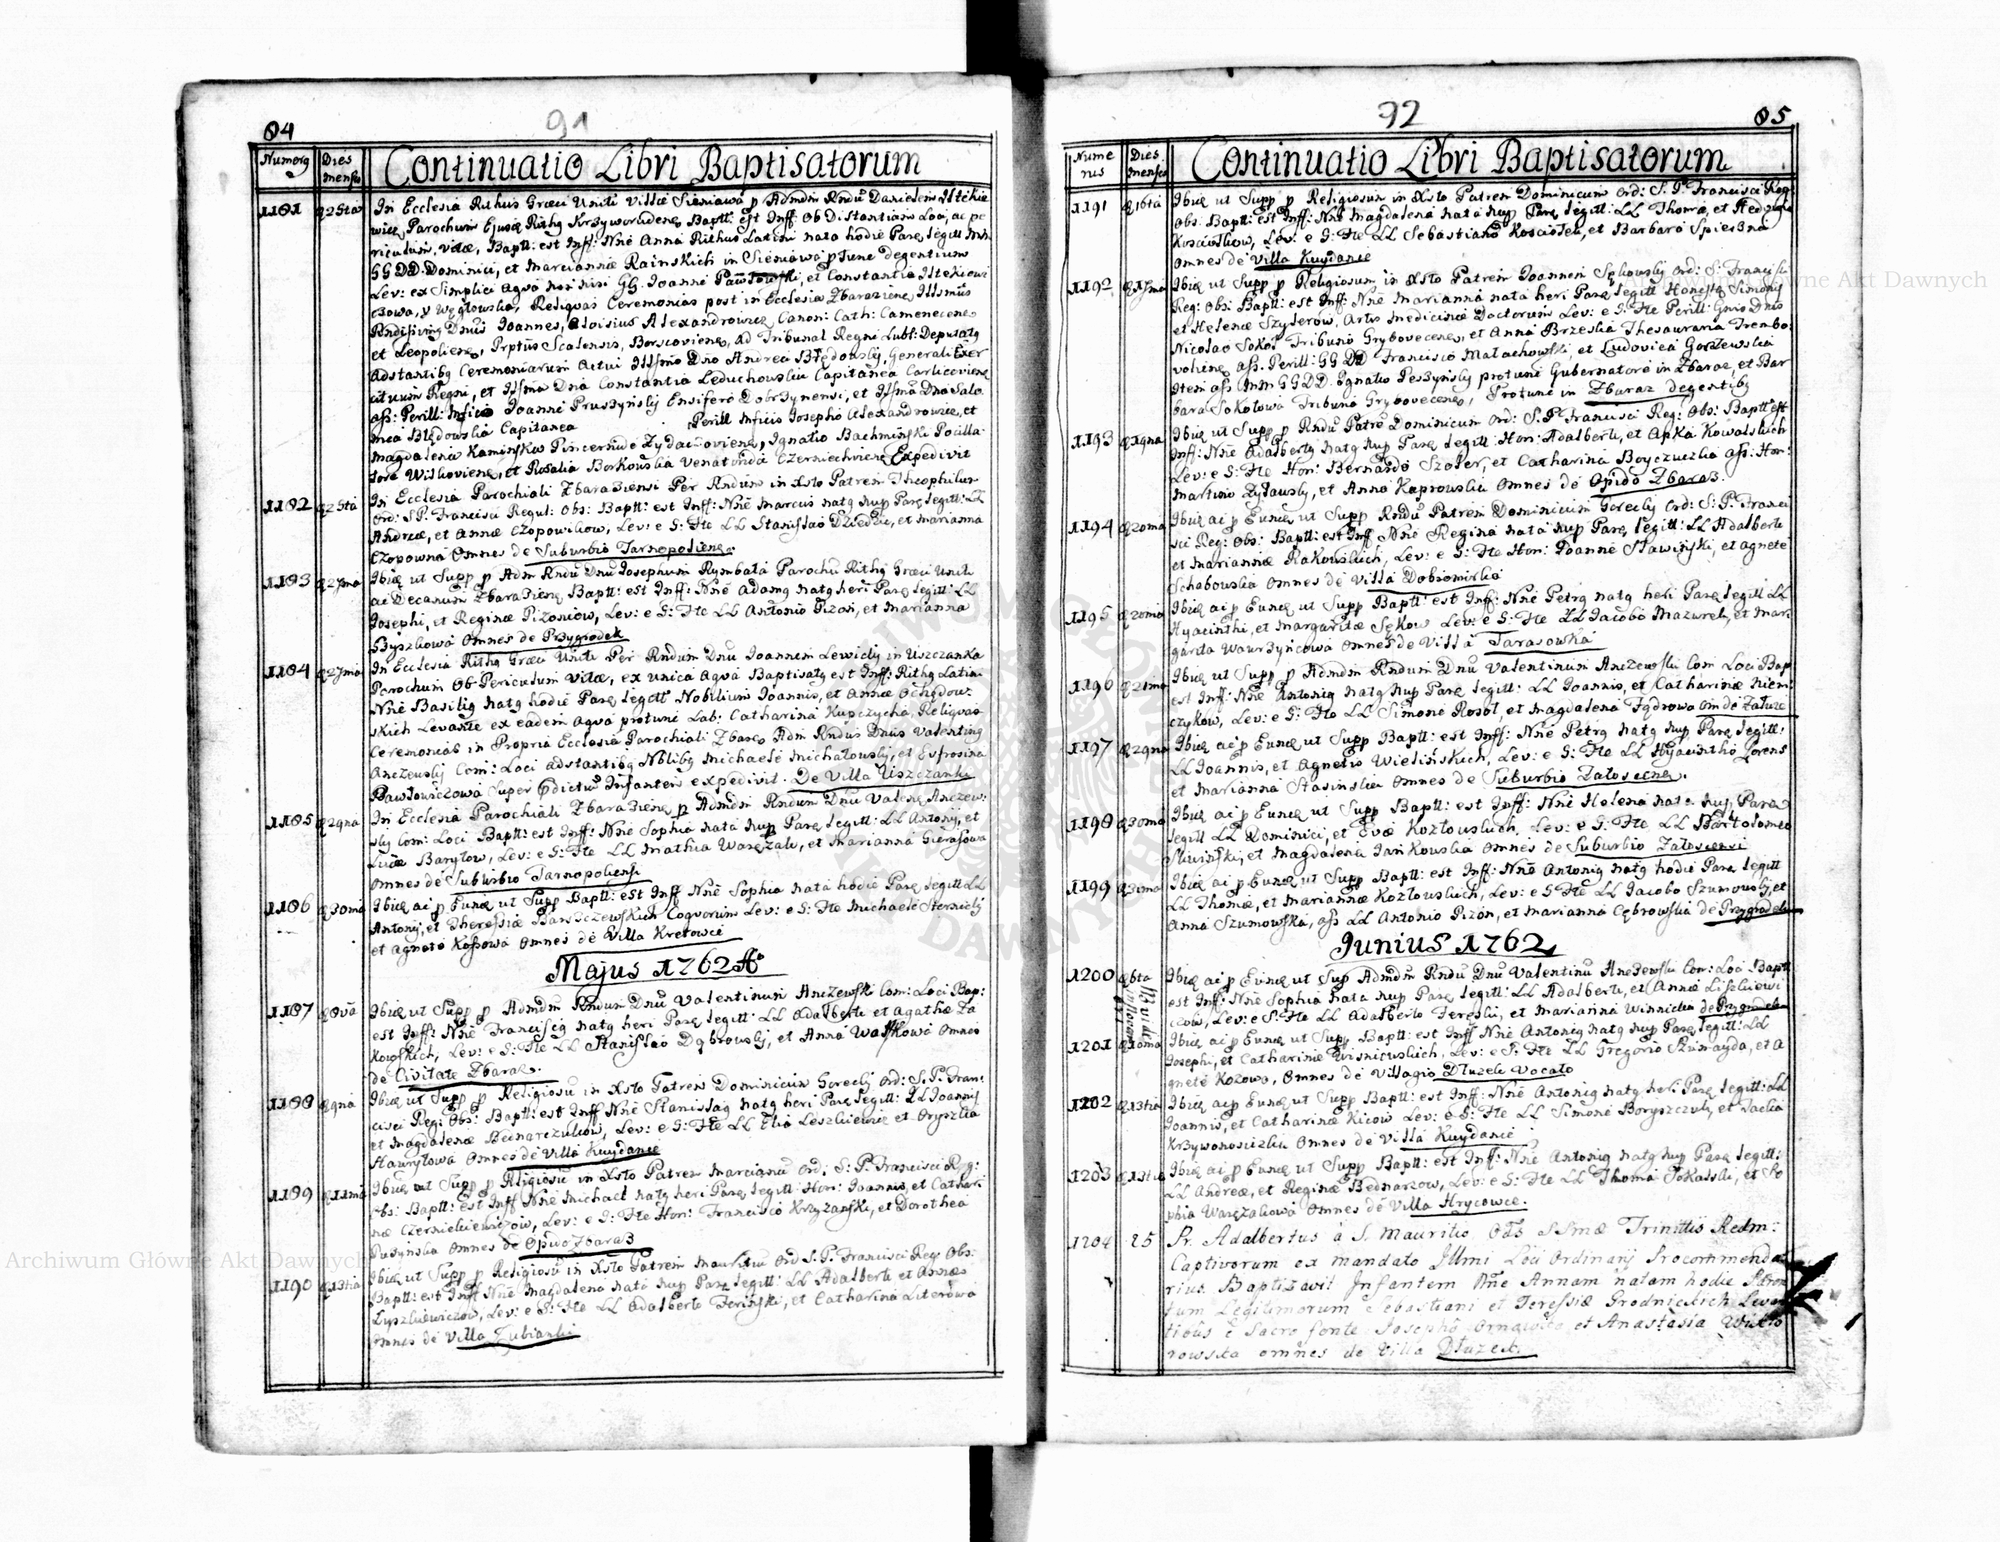 84
91
Numerꝯ
Dies mensis
Continuatio Libri Baptisatorum
1181
25ta
In Ecclesia Rithus Græci Uniti Villæ Sieniawa p Admdm Rndũ Danielem
Parochum Ejusq Rithꝯ Baptt: est Inff: Ob Distantiam Loci, ac pe
riculum vitæ, Baptt: est Inff: Nñe Anna Rithus Latini nata hodie Parꝯ legitt:
GG DD Dominici, et Mariannæ Rainskich in Sieniawa ptunc degentium
Lev: ex Simplici Aqva Gg: Joanne et Constantia
Reliquas Ceremonias post in Ecclesia Zbarazienꝯ Illsmus
Dnus Joannes, Aloisius Alexandrowicz, Canon: Cath: Camenecenꝯ
et Leopolienꝯ, Scalensis, Borscovienꝯ, ad Tribunal Regni Lubl: Deputatꝯ
Adstantibꝯ Ceremoniarum Actui Illsmo Dno Andrea Błędowskij, Generali Exer
cituum Regni, et Illsma Dna Constantia Leduchowskia Capitanea
ass: Perill: Joanne Pruszyńskij Ensifero Dobrzynensi, et Illsma Dna Salo
mea Błędowskia Capitanea Perill Josepho Alexandrowicz, et
Magdalena Kamińska Pincernide Zydaczovienꝯ, Ignatio Bachmiński Pocilla
tore Wilkovienꝯ, et Rosalia Borkowskia Venatorida Czerniechovienꝯ Expedivit
1182
25ta
In Ecclesia Parochiali Zbaraziensi Per Rndum in Xsto Patrem Theophilum
Ord: S.P. Francisci Regul: Obs: Baptt: est Inff: Nñe Marcus natꝯ nup Parꝯ legitt: LL
Andreæ, et Annæ Czopowikow, Lev: e S: Fte LL Stanislao Dziedzic, et Marianna
Czopowna Omnes de Suburbio Tarnopolienꝯ.
1183
27ma
Ibiꝯ ut Supp p Adm Rndũ Dnũ Josephum Rymbała Parochũ Rithꝯ Græci Uniti
ac Decanum Zbarazienꝯ Baptt: est Inff: Nñe Adamꝯ natꝯ heri Parꝯ legitt: LL
Josephi, et Reginæ Pizoniow, Lev: e S: Fte LL Antonio Pizoń, et Marianna
Byszkowa Omnes de Przygrodek
1184
27ma
In Ecclesia Rithꝯ Græci Uniti Per Rndum Dnũ Joannem Lewicky in Uszczanka
Parochum Ob Periculum Vitæ, ex unica Aqva Baptisatꝯ est Inff: Rithꝯ Latini
Nñe Basiliꝯ natꝯ hodie Parꝯ legitt Nobilium Joannis, et Annæ
skich Levante ex eadem aqva protunc Lab: Catharina Kupczycha, Reliquas
Ceremonias in Propria Ecclesia Parochiali Zbarꝯ Adm Rndus Dnus Valentinꝯ
Anczewskij Com: Loci adstantibꝯ Nblibꝯ Michaele Michałowskij, et Eufrosina
Pawłowiczowa Super Edictũ Infantem expedivit. De Villa Uszczanki
1185
29na
In Ecclesia Parochiali Zbarazienꝯ p Admdm Rndum Dnũ Valent: Anczew:
skij Com: Loci Baptt: est Inff: Nñe Sophia nata nup Parꝯ legitt: LL Antonij, et
Luciæ Baryłow, Lev: e S: Fte LL Mathia Waręzak, et Marianna Gierasowa
Omnes de Suburbio Tarnopoliensi
1186
30ma
Ibiꝯ ac p Eunꝯ ut Supp Baptt: est Inff Nñe Sophia nata hodie Parꝯ legitt LL
Antonij, et Theressiæ Barszczewskich Coqvorum Lev: e S: Fte Michaele
et Agneta Kossowa Omnes de Villa Kretowce
Majus 1762 Aº
1187
8va
Ibiꝯ ut Supp p Admdm Rndum Dnũ Valentinum Anczewski Com: Loci Bap:
est Inff: Nñe Franciscꝯ natꝯ heri Parꝯ legitt: LL Adalberti et Agathæ Za
Kowskich, Lev: e S: Fte LL Stanislao Dąbrowskij, et Anna Omnes
de Civitate Zbaraz.
1188
9na
Ibiꝯ ut Supp p Religiosũ in Xsto Patrem Dominicum Goreckij Ord: S.P. Fran:
cisci Reg: Obs: Baptt: est Inff Nñe Stanislaꝯ natꝯ heri Parꝯ legitt: LL Joannis
et Magdalenæ Bednarczukow, Lev: e S: Fte LL Elia Leszkiewicz et Oryszkia
Hawryłowa Omnes de Villa Kuydanie
1189
11ma
Ibiꝯ ut Supp p Religiosũ in Xsto Patrem Marcianũ Ord: S: P: Francisci Reg:
Obs: Baptt: est Inff Nñe Michael natꝯ heri Parꝯ legitt: Hon: Joannis, et Cathari
næ Czernichiewiczow, Lev: e S: Fte Hon: Francisco Krzyżański, et Dorothea
Omnes de Opido Zbaraz
1190
13tia
Ibiꝯ ut Supp p Religiosũ in Xsto Patrem Mauritiũ Ord S.P. Francisci Reg: Obs:
Baptt: est Inff Nñe Magdalena nata nup Parꝯ legitt: LL Adalberti et Annæ
Łyszkiewiczow, Lev: e S: Fte LL Adalberto et Catharina Literowa
Omnes de Villa Lubianki
72
85
Nume rus
Dies mensis
Continuatio Libri Baptisatorum
1191
16ta
Ibiꝯ ut Supp p Religiosum in Xsto Patrem Dominicum Ord: S. P. Francisci Reg:
Obs: Baptt: est Inff: Nñe Magdalena nata nup Parꝯ legitt: LL Thomæ, et Hedvigis
Kosciołkow, Lev: e S: Fte LL Sebastiano Kosciołek, et Barbara
Omnes de Villa Kuydanie
1192
17ma
Ibiꝯ ut Supp p Religiosum in Xsto Patrem Joannem Ord: S: Francisci
Reg: Obs: Baptt: est Inff: Nñe Marianna nata heri Parꝯ legitt Simonis
et Helenæ Szylerow, Artis Medicinæ Doctorum Lev: e S: Fte Perill:
Nicolao Sokoł Tribuno Grybovecenꝯ, et Anna Brzeska Thesauraria Trembo
volienꝯ ass: Perill: GG DD Francisco Małachowski, et Ludovica
Item ass Mm GG DD: Ignatio protunc Gubernatore in Zbaraz, et Bar
bara Sokołowa Tribuna Grybovecenꝯ, Protunc in Zbaraz degentibꝯ
1193
19na
Ibiꝯ ut Supp p Rndũ Patrẽ Dominicum Ord: S.P. Francisci Reg: Obs: Baptt: est
Inff: Nñe Adalbertꝯ natꝯ nup Parꝯ legitt: Hon: Adalberti, et Apka Kowalskich
Lev: e S: Fte Hon: Bernardo Szoter, et Catharina ass: Hon:
Martino Zyławskij, et Anna Kaprowskia Omnes de Opido Zbaraz.
1194
20ma
Ibiꝯ ac p Eunꝯ ut Supp Rndũ Patrem Dominicum Goreckij Ord: S: P: Franci
sci Reg: Obs: Baptt: est Inff Nñe Regina nata nup Parꝯ legitt: LL Adalberti
et Mariannæ Rakowskich, Lev: e S: Fte Hon: Joanne Sławiński, et Agnete
Schabowskia Omnes de Villa Dobromirka
1195
20ma
Ibiꝯ ac p Eunꝯ ut Supp Baptt: est Inff: Nñe Petrꝯ natꝯ heri Parꝯ legitt LL
Hyacinthi, et Margaritæ Sękow Lev: e S: Fte LL Jacobo Mazurek, et Mar
garita Wawrzyńcowa Omnes de Villa Tarasowka
1196
21ma
Ibiꝯ ut Supp p Admdm Rndum Dnũ Valentinum Anczewski Com Loci Bap
est Inff: Nñe Antoniꝯ natꝯ nup Parꝯ legitt: LL Joannis, et Catharinæ Niem
czykow, Lev: e S: Fte LL Simone Rosoł, et Magdalena Fędrowa Om de Załuze
1197
29na
Ibiꝯ ac p Eunꝯ ut Supp Baptt: est Inff: Nñe Petrꝯ natꝯ nup Parꝯ legitt:
LL Joannis, et Agnetis Wielińskich, Lev: e S: Fte LL Hyacintho Lorens
et Marianna Stasinskia Omnes de Suburbio Załoscenꝯ.
1198
30ma
Ibiꝯ ac p Eunꝯ ut Supp Baptt: est Inff: Nñe Helena nata nup Parꝯ
legitt LL Dominici, et Evæ Kozłowskich, Lev: e S: Fte LL Bartolomeo
Sliwiński, et Magdalena Jankowskia Omnes de Suburbio Załoscensi
1199
31ma
Ibiꝯ ac p Eunꝯ ut Supp Baptt: est Inff: Nñe Antoniꝯ natꝯ hodie Parꝯ legitt
LL Thomæ, et Mariannæ Kozłowskich, Lev: e S: Fte LL Jacobo Szumowskij, et
Anna Szumowska, ass LL Antonio Pizoń, et Marianna Cębrowskia de Przygrodek
Junius 1762
1200
6ta
Ibiꝯ ac p Eunꝯ ut Sup Admdm Rndũ Dnũ Valentinũ Anczewski Com: Loci Baptt
est Inff: Nñe Sophia nata nup Parꝯ legitt: LL Adalberti, et Annæ
czow, Lev: e S: Fte LL Adalberto Tereski, et Marianna Winnicka de Przygrodek
1201
10ma
Ibiꝯ ac p Eunꝯ ut Supp Baptt: est Inff Nñe Antoniꝯ natꝯ nup Parꝯ legitt: LL
Josephi, et Catharinæ Wisniewskich, Lev: e S: Fte LL Gregorio et A
gnete Kozowa, Omnes de Villagio Dłuzek Vocato
1202
13tia
Ibiꝯ ac p Eunꝯ ut Supp Baptt: est Inff: Nñe Antoniꝯ natꝯ heri Parꝯ legitt: LL
Joannis, et Catharinæ Kicow Lev: e S: Fte LL Simone Boryszczuk, et
Omnes de Villa Kuydanie
1203
13tia
Ibiꝯ ac p Eunꝯ ut Supp Baptt: est Inff: Nñe Antoniꝯ natꝯ nup Parꝯ legitt:
LL Andreæ, et Reginæ Bednarzow, Lev: e S: Fte LL Thoma et So
phia Waręzakowa Omnes de Villa Hrycowce.
1204
25
Fr. Adalbertus à S. Mauritio Ods SSmæ Trinittis Redm:
Captivorum ex mandato Illmi Loci Ordinarij Procommenda
rius Baptizavit Infantem Nñe Annam natam hodie
tum Legitimorum Sebastiani et Teressiæ Grodnickich Levan
tibus è Sacro fonte Josepho et Anastasia
rowska omnes de Villa Dłuzek.
Archiwum Główne Akt Dawnych
Archiwum Główne Akt Dawnych
ARCHIWUM GŁÓWNE AKT DAWNYCH